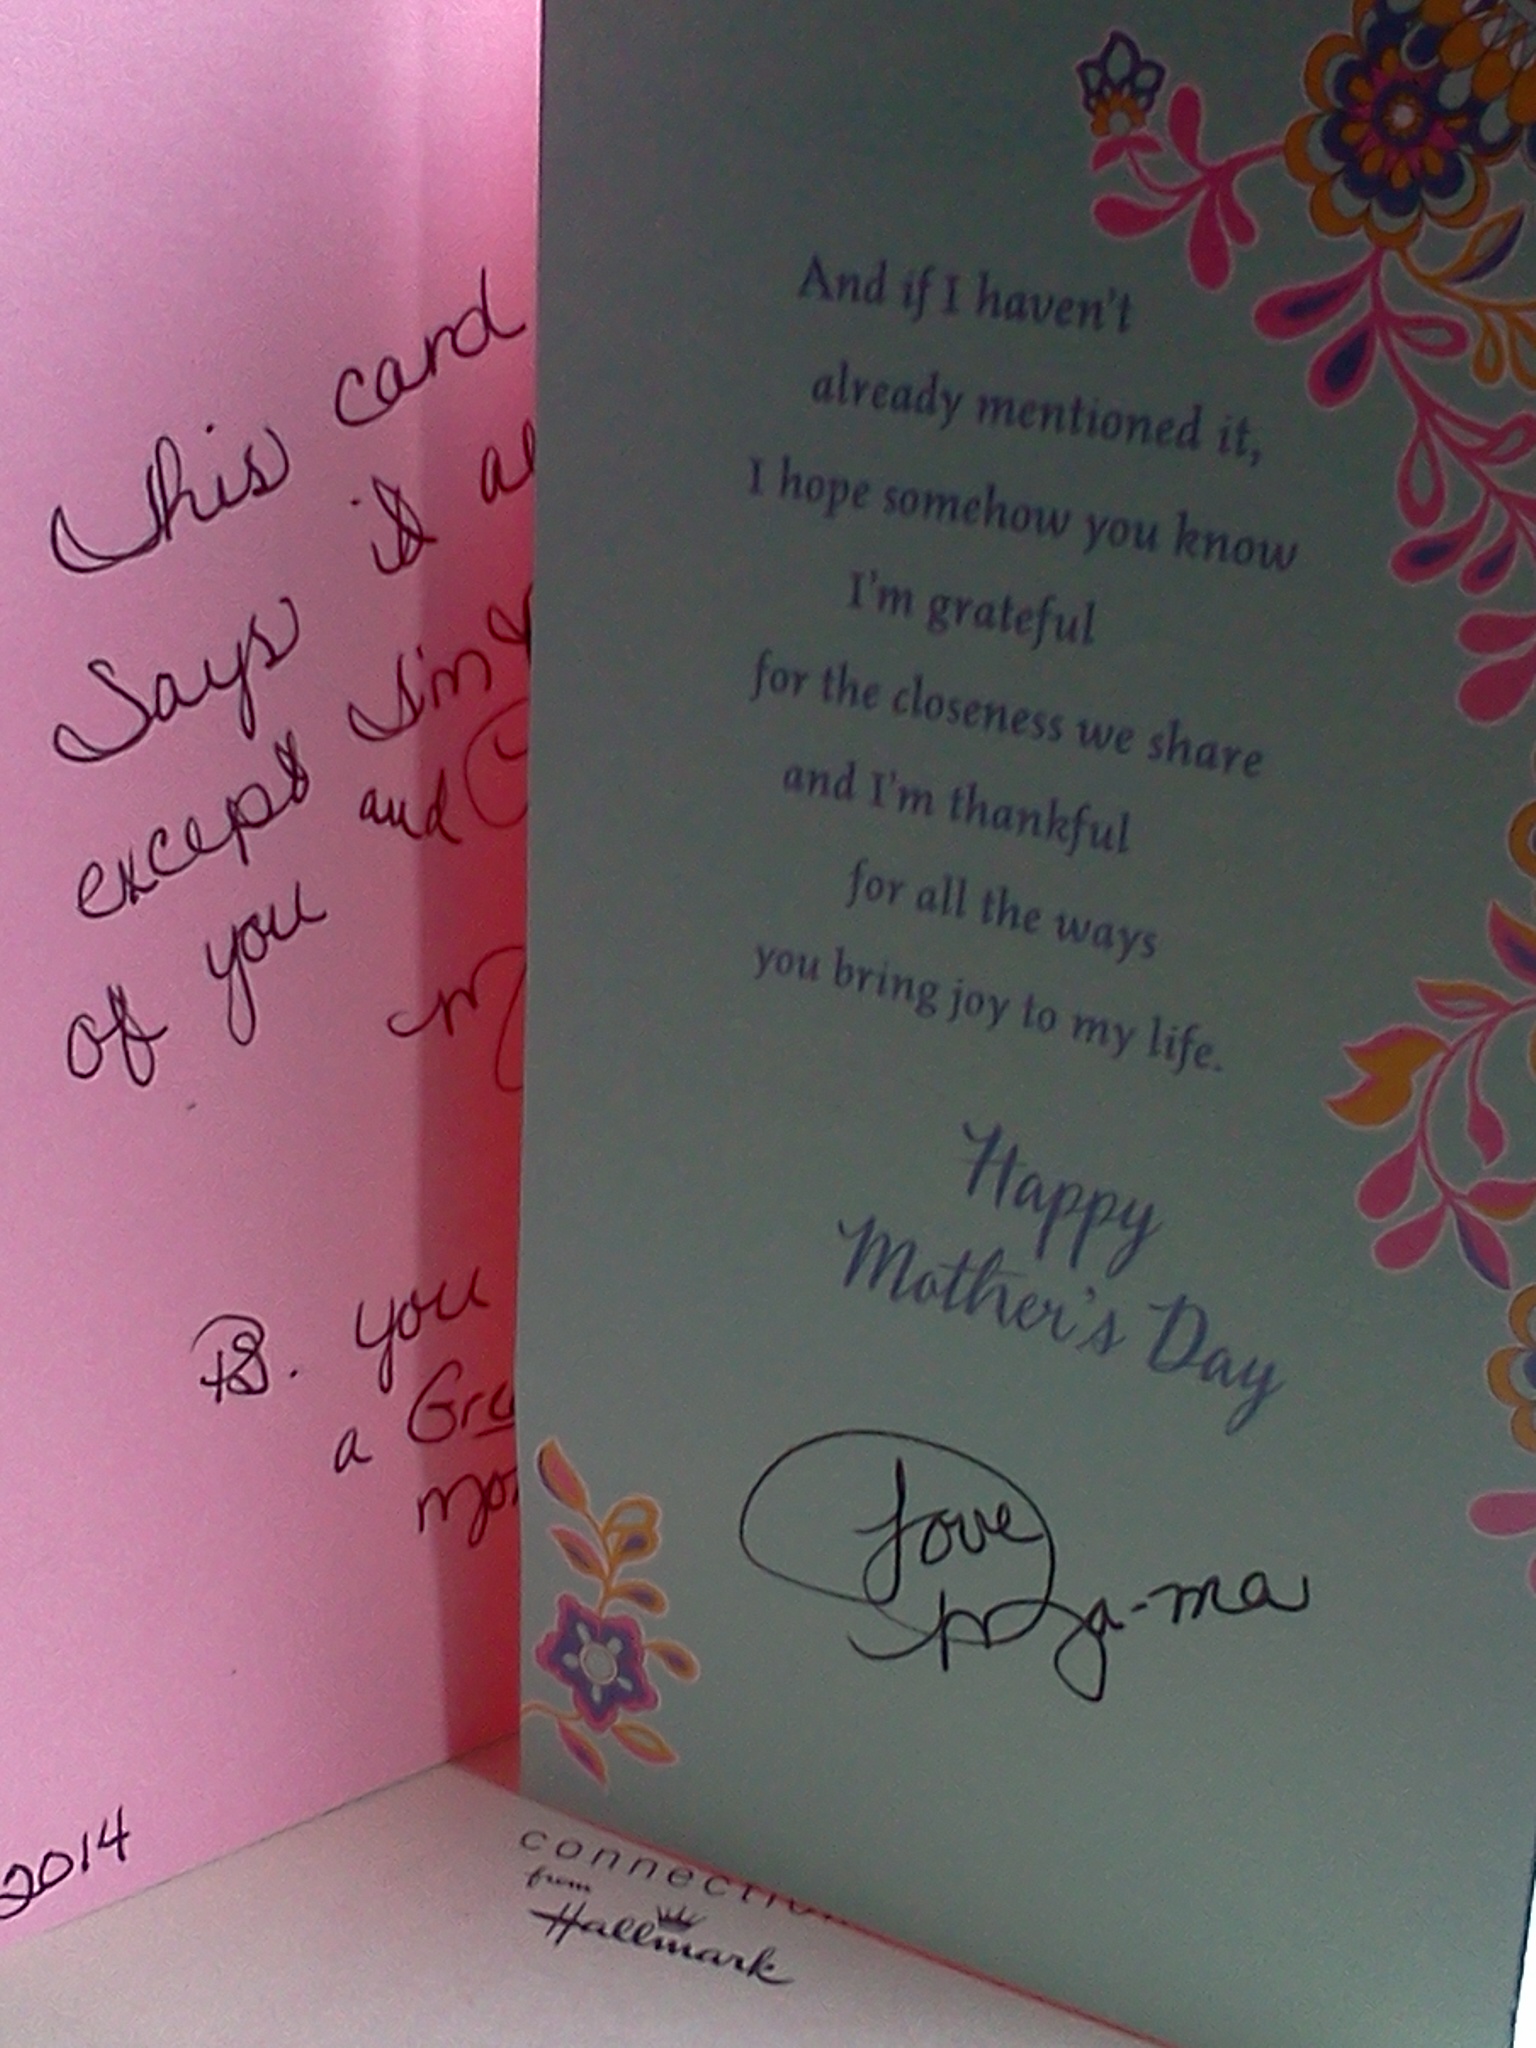 This card
Says it
except I'm
of you and
P.S. you
a
2014
And if I haven't
already mentioned it,
I hope somehow you know
I'm grateful
for the closeness we share
and I'm thankful
for all the ways
you bring joy to my life.
Happy
Mother's Day
Love
ma
from
Hallmark